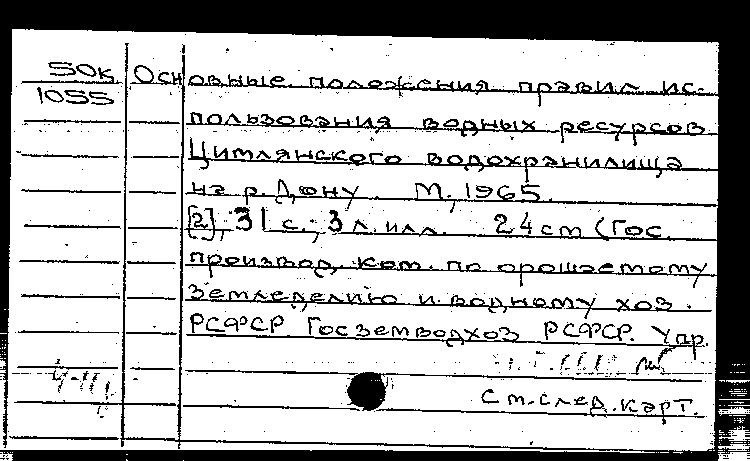 50к Основные положения правил ис-
1055 пользования водных ресурсов
Цимлянского водохранилища
на р. Дону. М., 1965.
[2], 31 с.; 3 л. илл. 24 cm (Гос.
производ. ком. по орошаемому
земледелию и водному хоз.
РСФСР. Госземводхоз РСФСР. Упр.
См. след. карт.